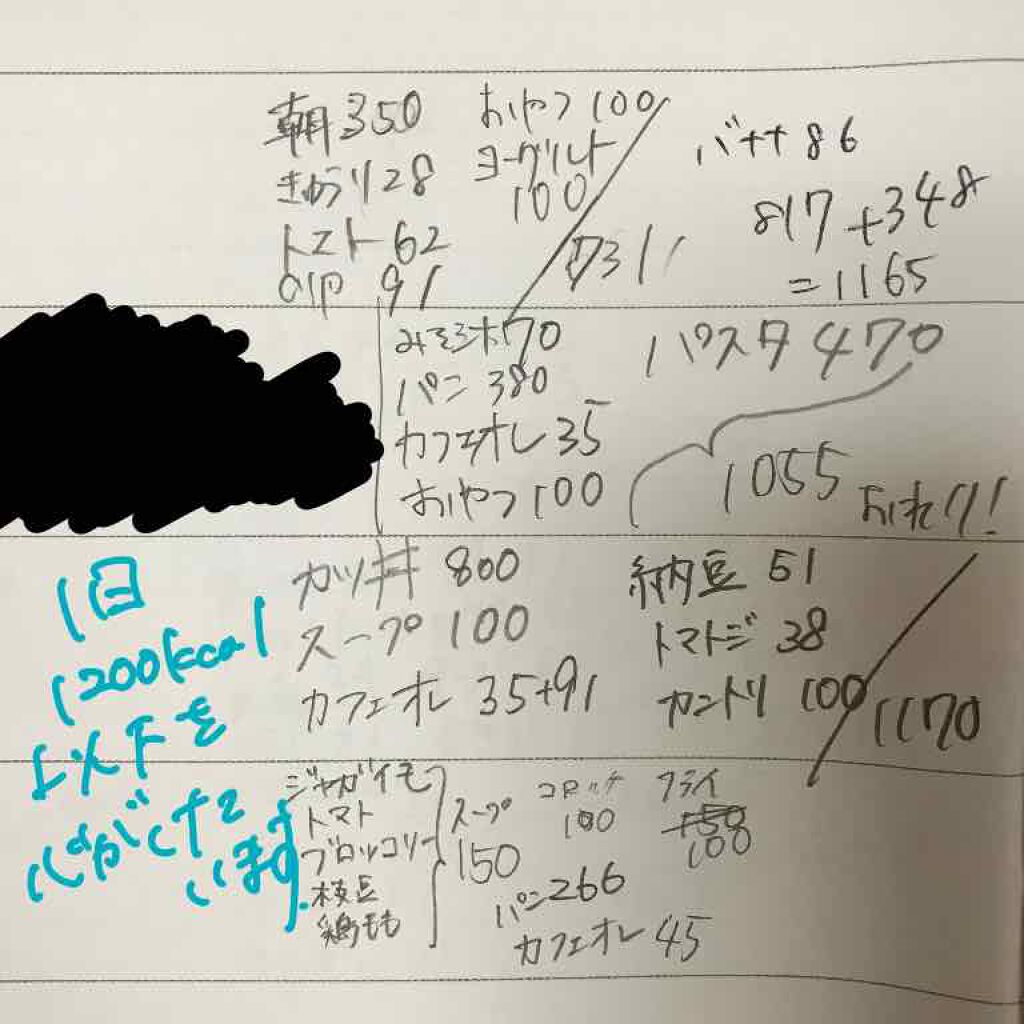 朝350
きゅうり28
トマト62
alp 91
おやつ100
ヨーグルト
100
731
バナナ86
817+348
=1165
みそ汁70
パン380
カフェオレ35
おやつ100
パスタ470
1055
おわり!
カツ丼 800
スープ100
カフェオレ 35+91
納豆 51
トマトジ 38
カントリ 100
1170
ジャガイモ
トマト
ブロッコリー
枝豆
鶏もも
スープ
150
コロッケ
100
フライ
150
100
パン266
カフェオレ 45
1日
1200kcal
以下を
心がけて
います.